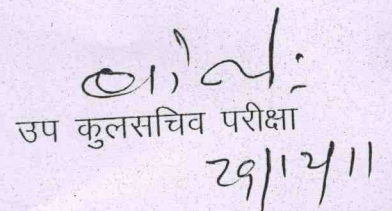 उप कुलसचिव परीक्षा
29/12/11